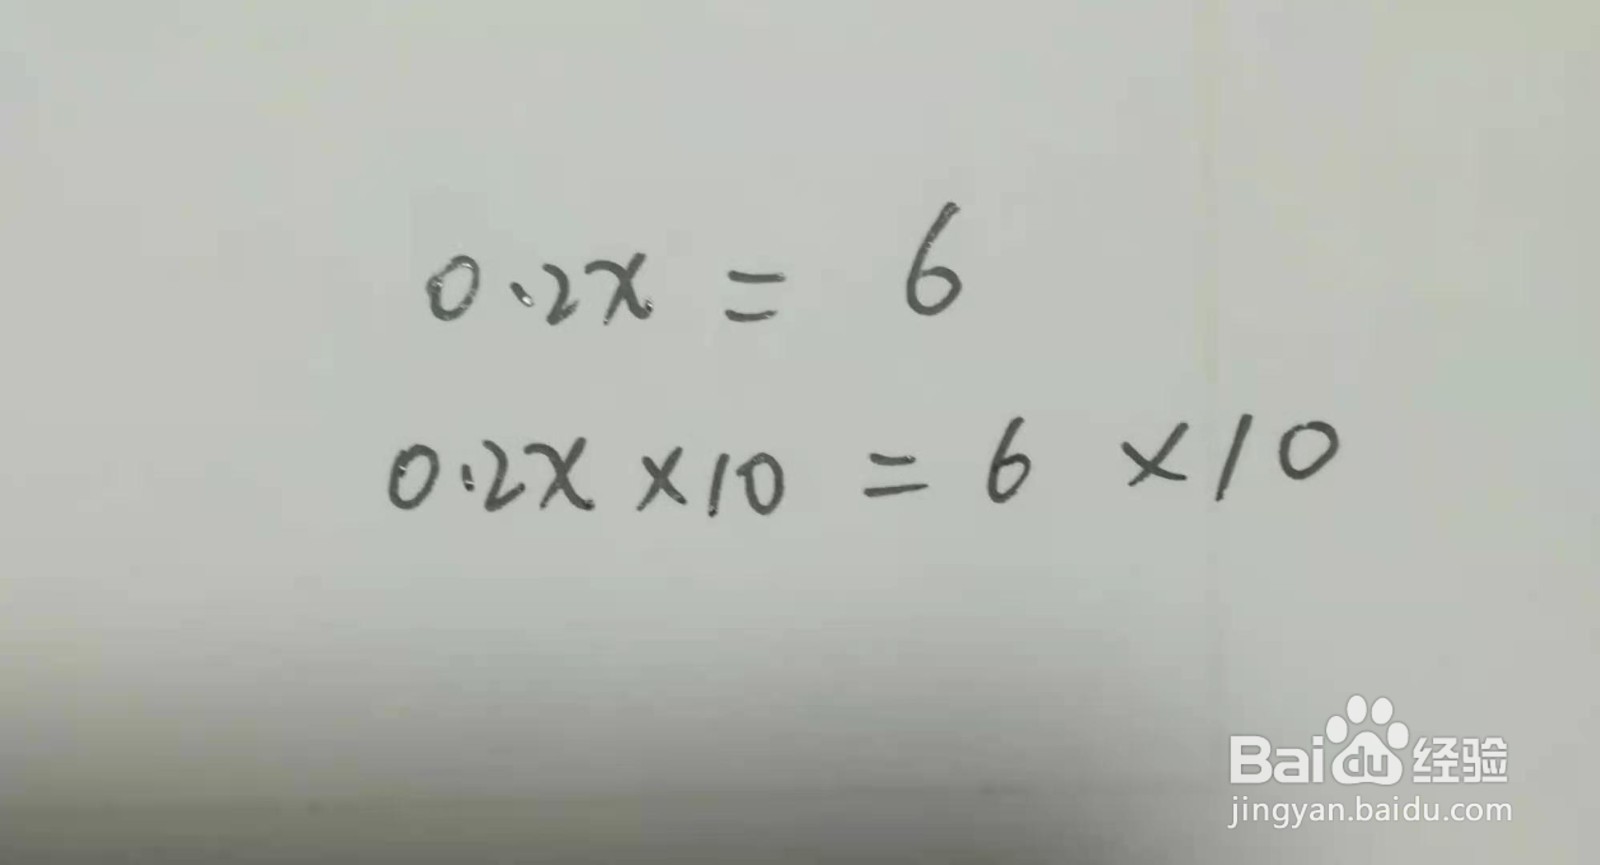 0.2x = 6
0.2x ×10 = 6 ×10
Baidu经验
jingyan.baidu.com